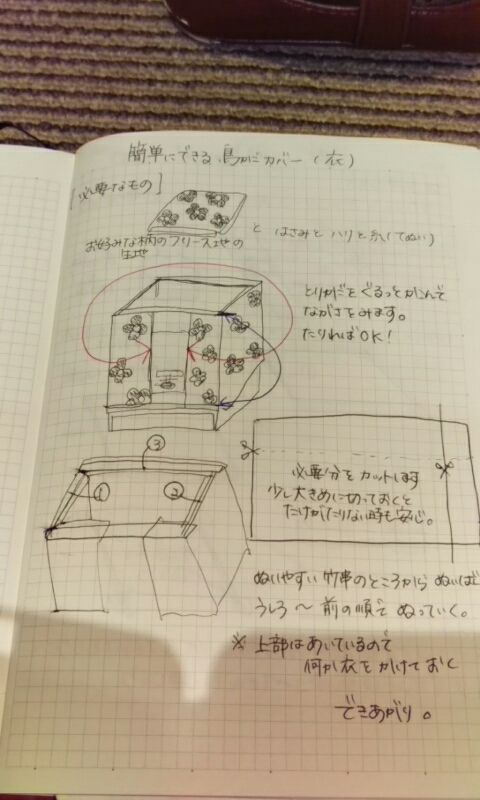 簡単にできる鳥かごカバー(衣)
[必要なもの]
と はさみとハリと糸(てぬい)
お好みな柄のフリース生地の
生地
とりかごをぐるっとかこんで
ながさをみます。
たりればOK!
③
① ②
必要分をカットします
少し大きめに切っておくと
たけがたりない時も安心。
ぬいやすい竹串のところから ぬいはじ
うしろ〜前の順で ぬっていく。
※ 上部はあいているので
何か衣をかけておく
できあがり。